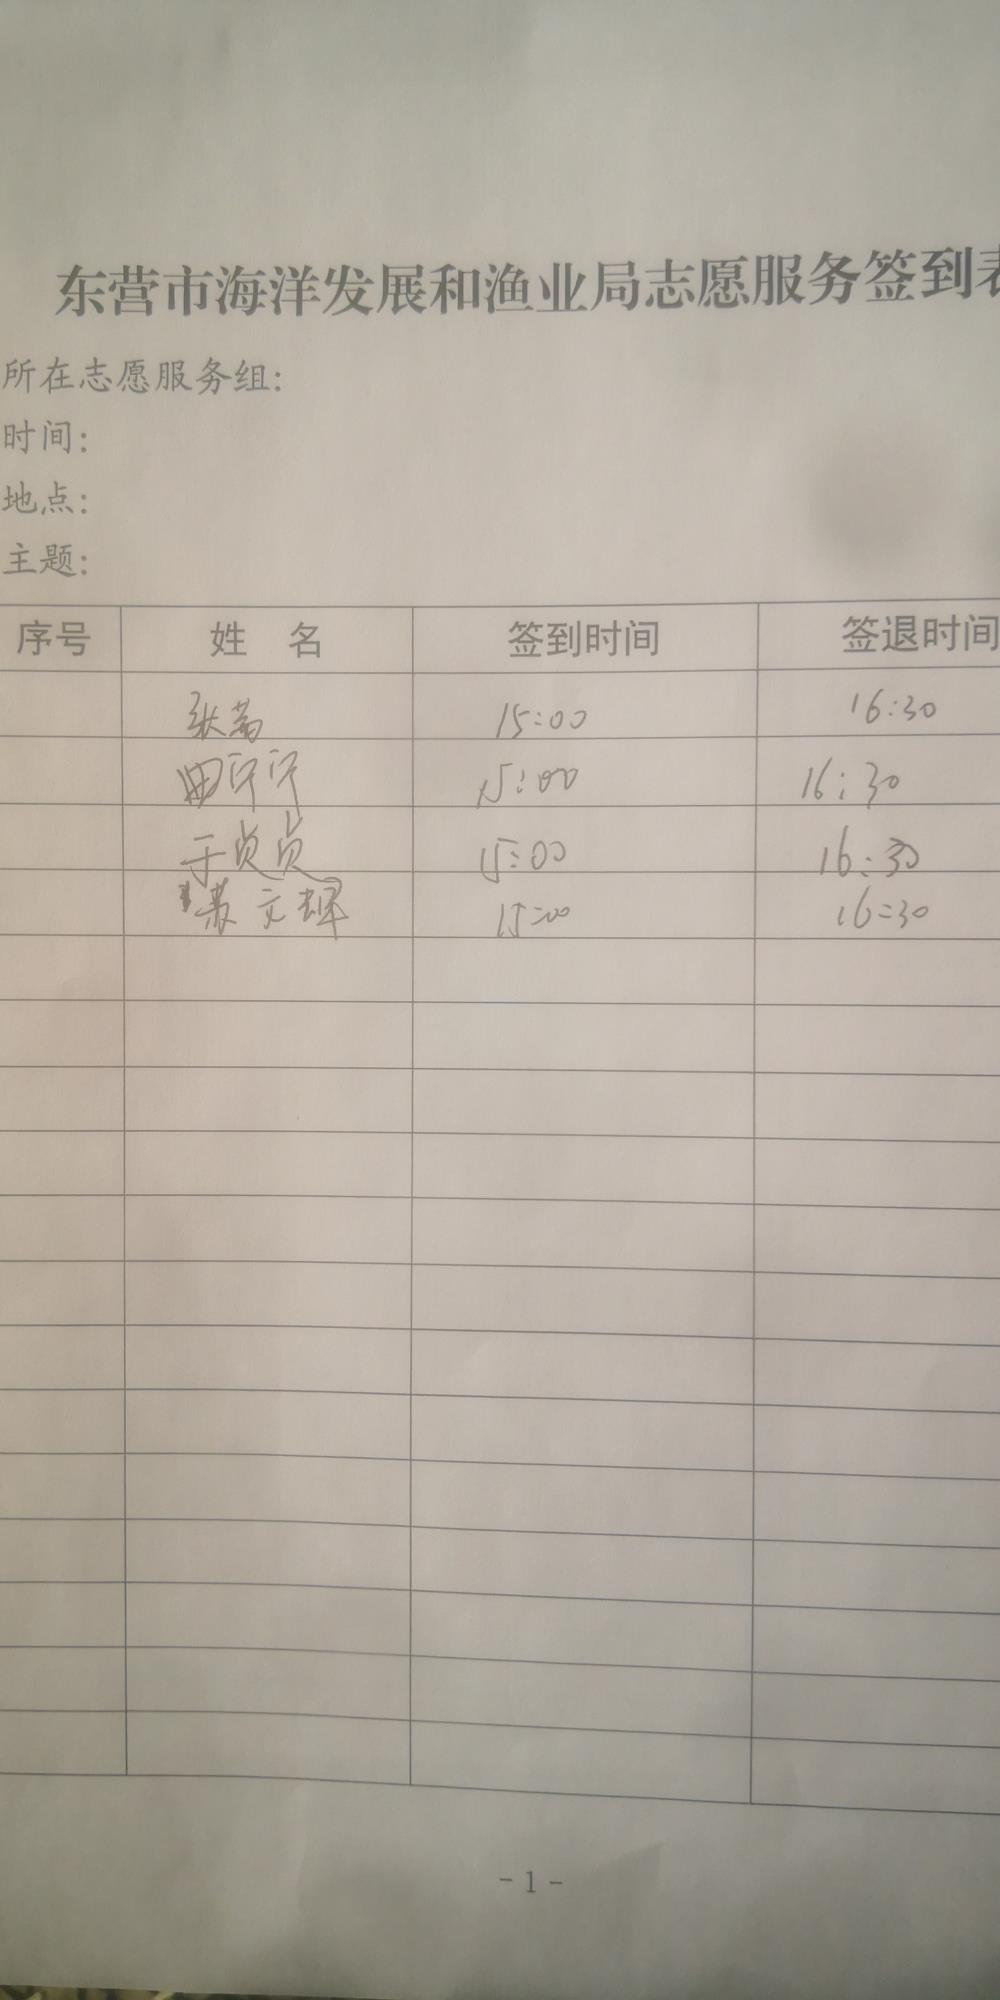 东营市海洋发展和渔业局志愿服务签到表
所在志愿服务组:
时间:
地点:
主题:
序号 姓 名 签到时间 签退时间
15:00 16:30
曲宁宁 15:00 16:30
于贞贞 15:00 16:30
苏文辉 15:00 16:30
- 1 -